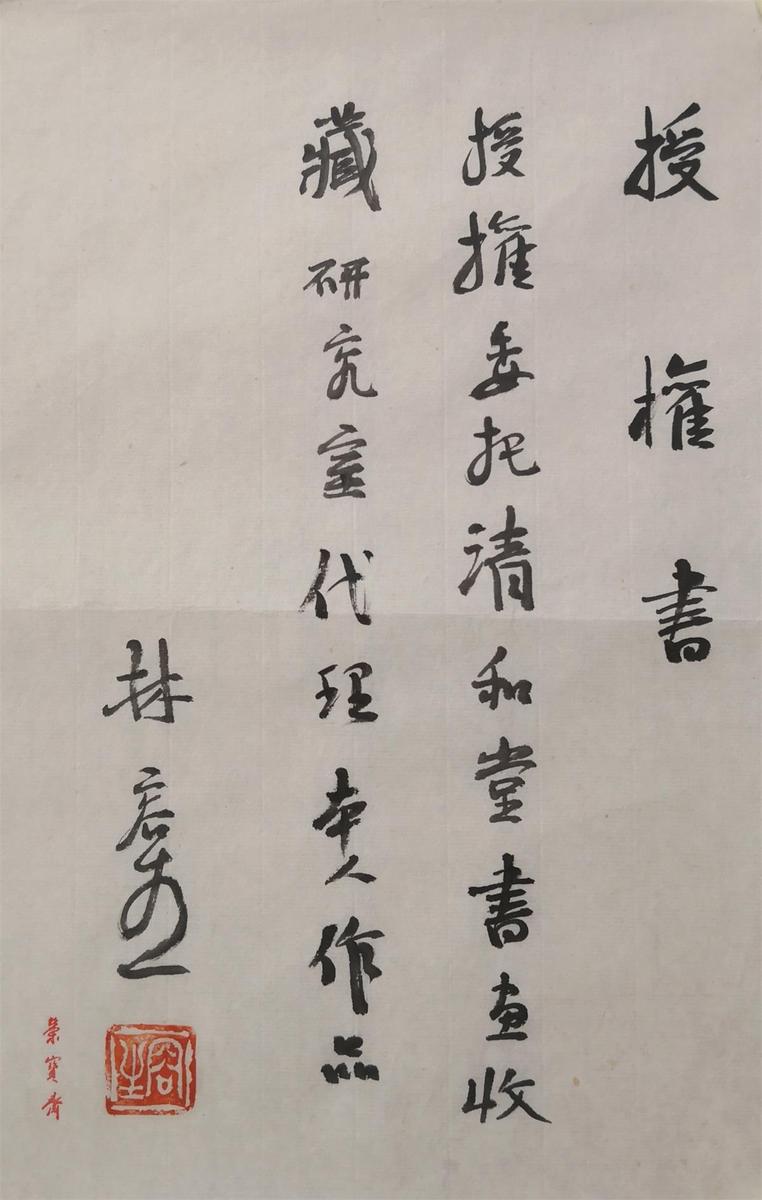 授權書
授權委托清和堂書画收
藏研究室代理本人作品
林容生
容生
榮寶齋